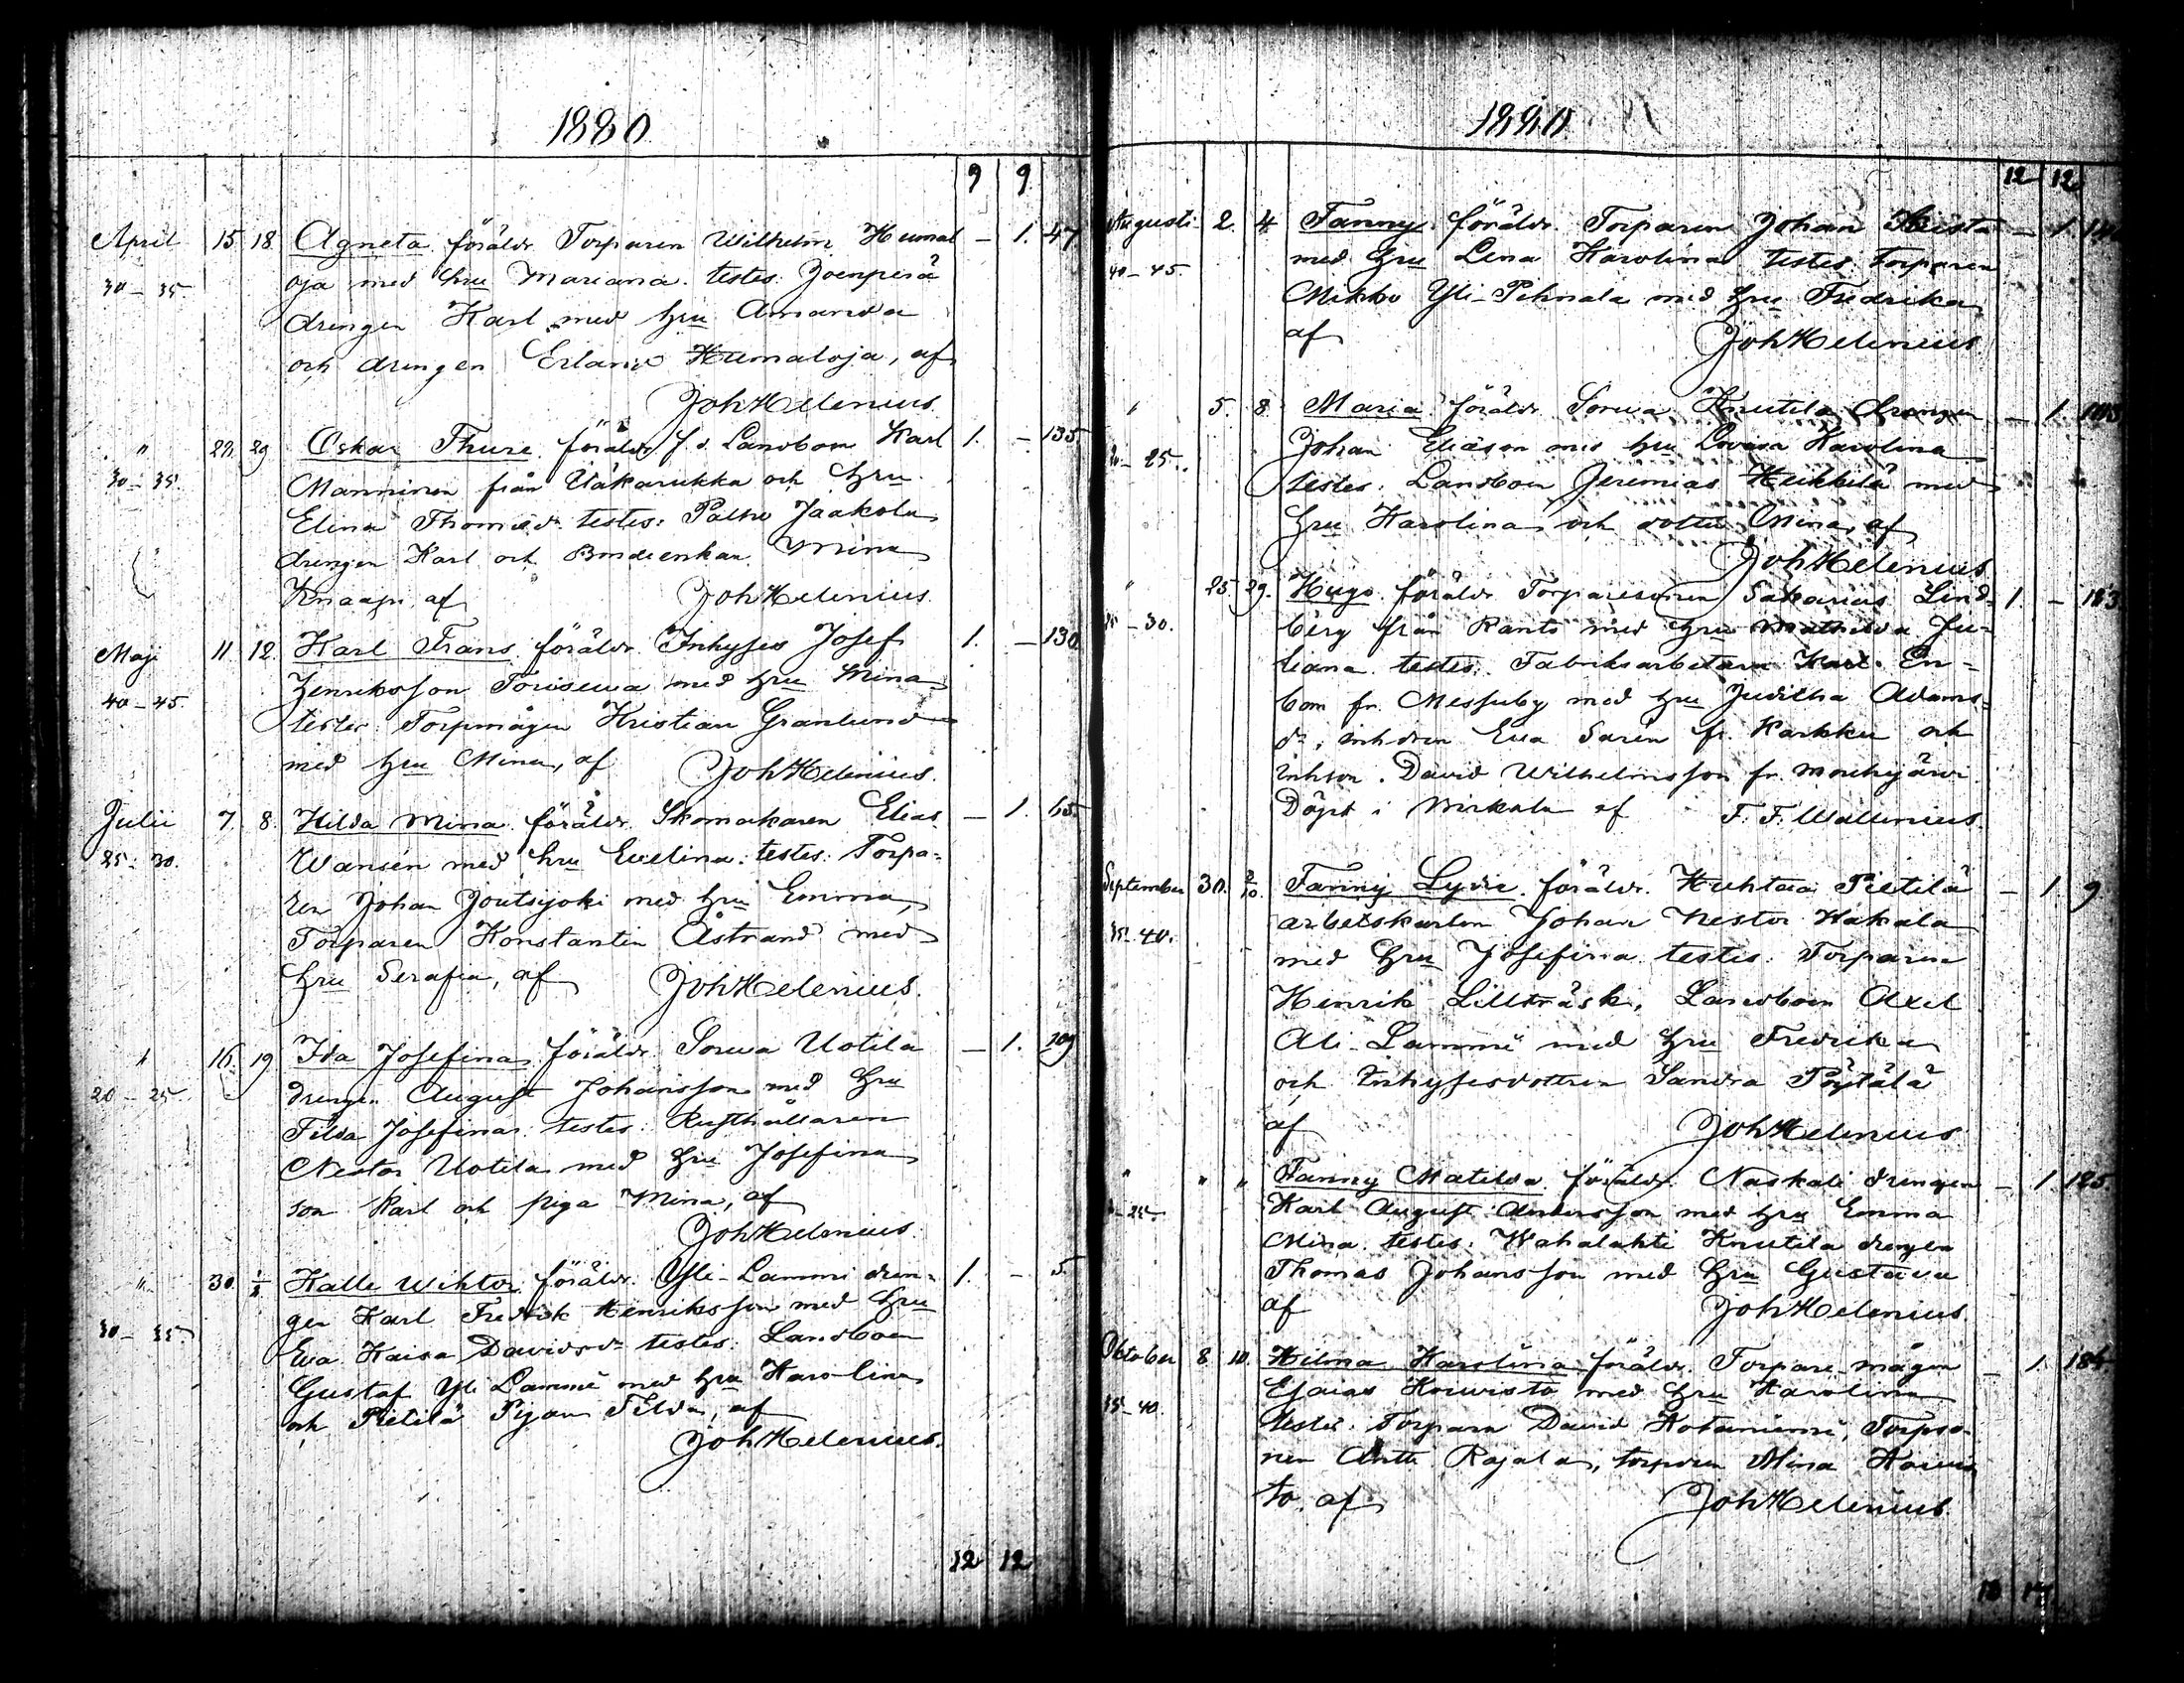 1880
9 9
April 15. 18. Agneta föräldr. Torparen Wilhelm Humal — 1. 47
30–35. oja med hru Mariana. testes. Joenperä
drengen Karl med hru Amanda
och drengen Erland Humaloja, af
Joh Helenius.
" 22. 29. Oskar Thure föräldr. f.d. Landboen Karl 1. — 135.
30–35. Manninen från och hru
Elina Thomasdr. testes: Palho Jaakola
drengen Karl och Bondeenkan Mina
Knaapi, af Joh Helenius.
Maji 11. 12. Karl Frans. föräldr. Inhyses Josef 1. — 130.
40–45. Henriksson med hru Mina
testes. Torpmågen Kristian Granlund
med hru Mina, af Joh Helenius.
Julii 7. 8. Hilda Mina föräldr. Skomakaren Elias — 1. 65.
25–30. Wansén med hru Evelina. testes. Torpa-
ren Johan Joutsijoki med hru Emma,
Torparen Konstantin Åstrand med
hru Serafia, af Joh Helenius.
" 16. 19. Ida Josefina föräldr. Sorwa Uotila — 1. 109
20–25. drengen August Johansson med hru
Tilda Josefina. testes: Rusthållaren
Nestor Uotila med hru Josefina
son Karl och piga Mina, af
Joh Helenius.
" 30. 1/8 Kalle Wihtor föräldr. Yli-Lammi dren- 1. — 5.
30–35. gen Karl Fredrik Henriksson med hru
Eva Kaisa Davidsdr testes: Landboen
Gustaf Yli Lammi med hru Karolina
och Pietilä Pigan Tilda, af
Joh Helenius.
12 12
1880
12 12
Augusti 2. 4. Fanny. föräldr. Torparen Johan — 1.
40–45. med hru Lena Karolina testes. Torparen
Mikko Yli-Pihnala med hru Fredrika
af Joh Helenius
" 5. 8. Maria föräldr. Sorwa Knutila drengen — 1.
20–25. Johan Eliasson med hru Lovisa Karolina
testes: Landboen Jeremias Heikkilä med
hru Karolina och dotter Mina, af
Joh Helenius
" 25. 29. Hugo föräldr. Torparesonen Sakarias Lind- 1. — 183
25–30. berg från Kanto med hru Mathilda Ju-
liana. testes. Fabriksarbetaren Karl En-
bom fr. Messuby med hru Juditha Adams-
dr, Eva Sarén fr. Karkku och
David Wilhelmsson fr. Mouhijärvi.
Döpt i af F. F. Wallenius.
September 30. 2/10. Fanny Lydia. föräldr. Huhtaa Pietilä — 1. 9
35–40. arbetskarlen Johan Nestor Hakala
med hru Josefina. testes: Torparen
Henrik Lillträsk, Landboen Axel
Ali-Lammi med hru Fredrika
och Inhysesdottren Sandra Pöytälä
af Joh Helenius
" " " Fanny Matilda. föräldr. Naskali drengen — 1 125
Karl August Andersson med hru Emma
Mina. testes: Wahalahti Knutila drengen
Thomas Johansson med hru Gustava
af Joh Helenius
Oktober 8. 10. Hilma Karolina föräldr. Torpare mågen — 1.
35–40. Esaias Koivisto med hru Karolina
testes. Torparen David Kotaniemi, Torpso-
nen Antti Rajala, Mina Koivis
to. af Joh Helenius.